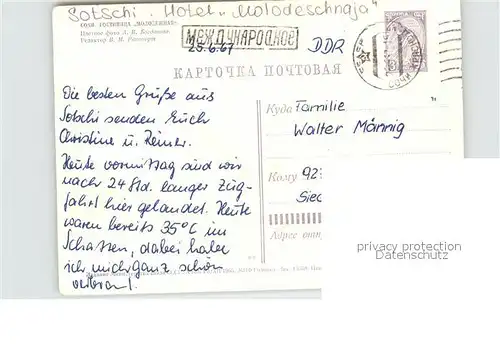 Sotschi - Hotel "Molodeschnaja"
СОЧИ ГОСТИНИЦА «МОЛОДЕЖНАЯ»
Цветное фото А. П. Богданова
Редактор В. И. Рахмиров
МЕЖДУНАРОДНОЕ
25.6.67
DDR
КАРТОЧКА ПОЧТОВАЯ
Die besten Grüße aus
Sotschi senden Euch
Christine u. Reiner.
Heute vormittag sind wir
nach 24 Std. langer Zug-
fahrt hier gelandet. Heute
waren bereits 35°C im
Schatten, dabei habe
ich mich ganz schön
Куда Familie
Walter Männig
Кому 92
Sied
Адрес отпр
privacy protection
Datenschutz